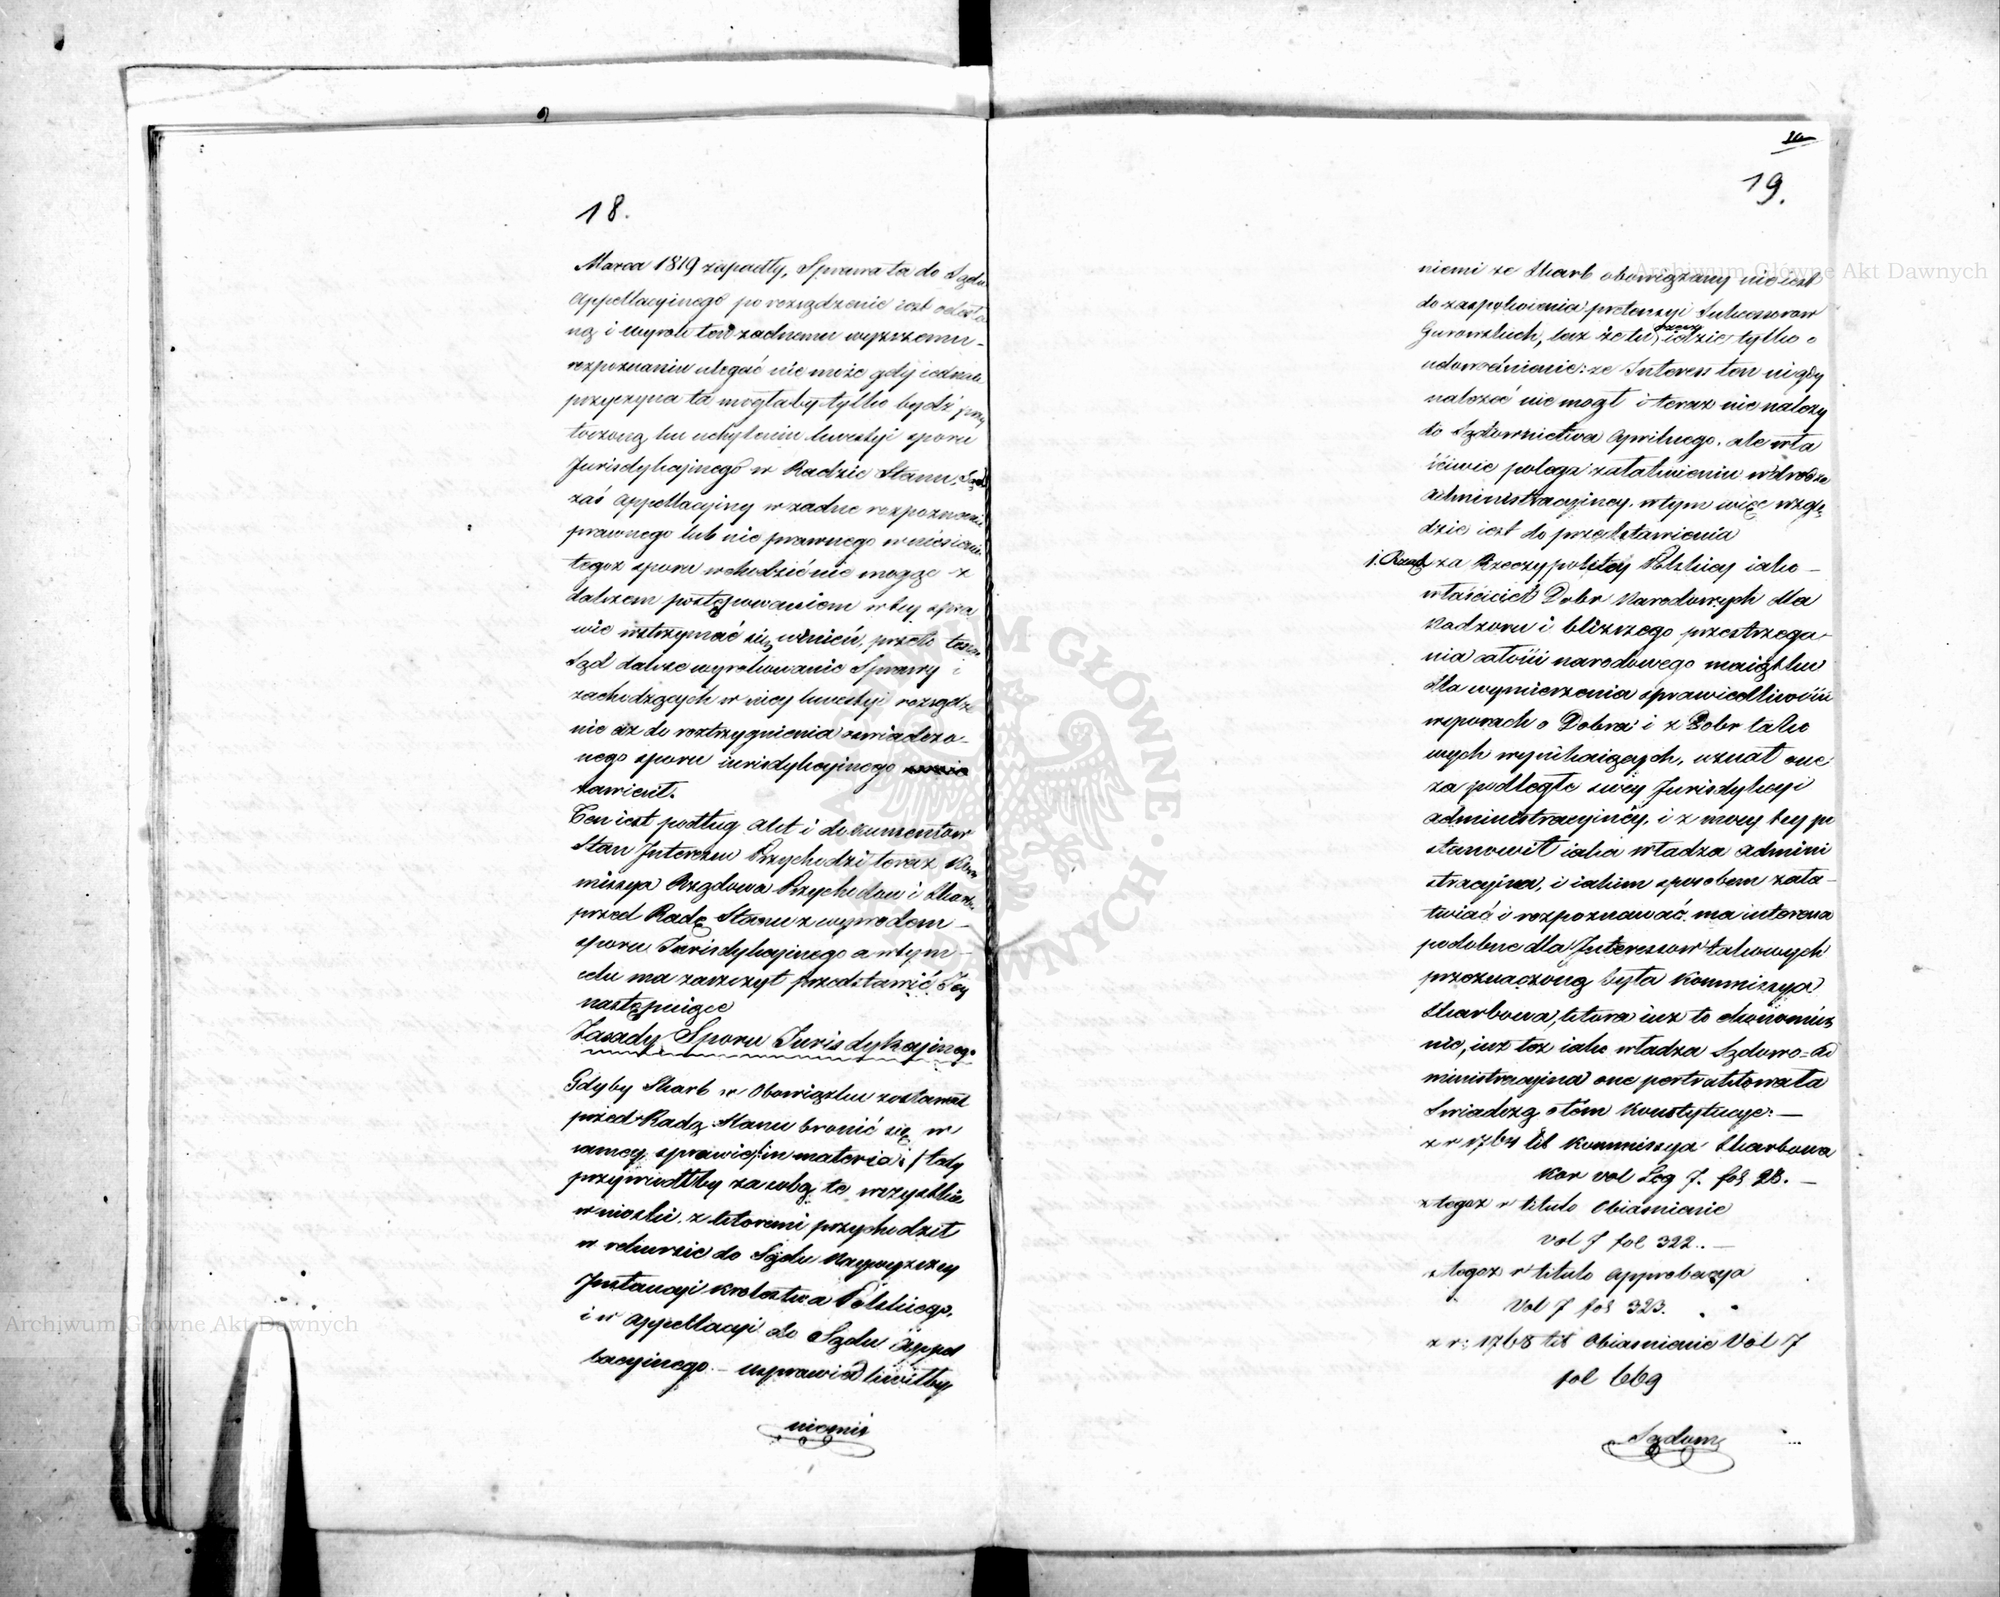 18.
Marca 1819 zapadły, Sprawa ta do Sądu
Appellacyinego po rozsądzenie iest odesła
ną i wyrok ten żadnemu wyższemu
rozpoznaniu ulegać nie może gdy iednak
przyczyna ta mogłaby tylko bydź przy
toczoną ku uchyleniu kwestyi sporu
Jurisdykcyjnego w Radzie Stanu, Sąd
zaś Appellacyiny w żadne rozpoznanie
prawnego lub nie prawnego wniesienia
tegoż sporu wchodzić nie mogąc z
dalszem postępowaniem w tey spra
wie wstrzymać się winien, przeto tenże
Sąd dalsze wyrokowanie Sprawy i
zachodzących w niey kwestyi rozsądze
nie aż do roztrzygnienia oświadczo-
nego sporu iurisdykcyjnego
zawiesił.
Ten iest podług Akt i dokumentow
Stan Interessu Przychodzi teraz Kom
missya Rządowa Przychodow i Skarbu
przed Radę Stanu z wywodem
sporu Jurisdykcyjnego a w tym
celu ma zaszczyt przedstawić Jey
następuiące
Zasady Sporu Jurisdykcyjnego
Gdyby Skarb w Obowiązku zostawał
przed Radą Stanu bronić się w
samey sprawie /:in materia:/ tedy
przywiodłby za sobą te wszystkie
wnioski, z ktoremi przychodził
w rekursie do Sądu Naywyższey
Instancyi Krolestwa Polskiego,
i w Appellacyi do Sądu Appel
lacyinego – usprawiedliwiłby
niemi
19.
niemi ze Skarb obowiązany nie iest
do zaspokoienia pretensyi Sukcessorow
Gurowskich, lecz że tu idzie tylko o
udowodnienie: ze Interess ten nigdy
należeć nie mogł i teraz nie należy
do Sądownictwa Cywilnego, ale wła
ściwie polega załatwieniu w drodze
administracyiney, w tym więc wzglę
dzie iest do przedstawienia
1. Rząd za Rzeczypospolitey Polskiey iako
właściciel Dobr Narodowych dla
Nadzoru i bliższego przestrzega-
nia całości narodowego maiątku
dla wymierzenia sprawiedliwości
w sporach o Dobra i z Dobr tako
wych wynikaiących, uznał one
za podległe swey Jurisdykcyi
administracyiney, i z mocy tey po
stanowił iaka władza admini
stracyina, i iakim sposobem zała-
twiać i rozpoznawać ma interessa
podobne dla Interessow takowych
przeznaczoną była Kommissya
Skarbowa, ktora iuż to ekonomicz
nie, iuż też iako władza Sądowo=Ad
ministracyina one pertraktowała
Swiadczą o tem Konstytucye: —
z r 1764 tit Kommissya Skarbowa
Kor vol Leg 7. fol 28. —
z tegoż r titulo Obiasnienie
vol 7 fol 322. —
z tegoż r titulo Approbacya
Vol 7 fol 323.
z r: 1768 tit Obiasnienie Vol 7
fol 669
Sądową
Archiwum Główne Akt Dawnych
Archiwum Główne Akt Dawnych